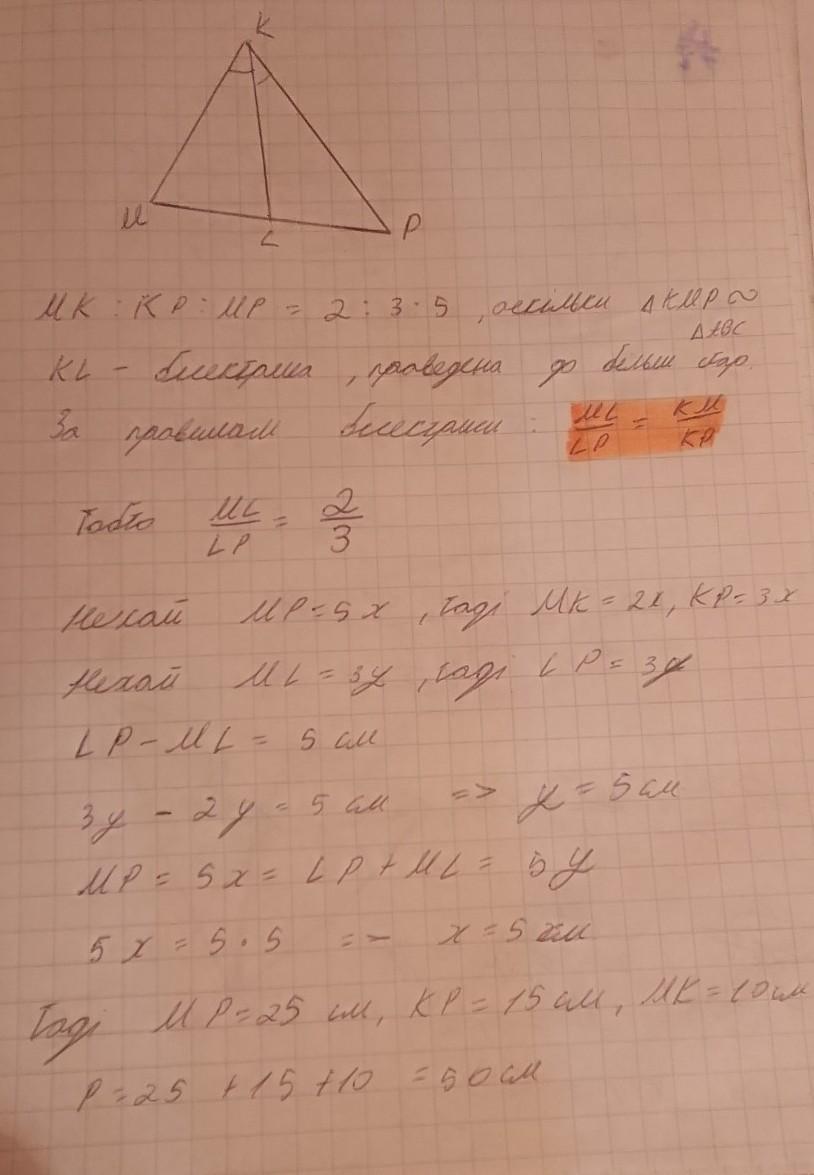 K
M
L
P
MK : KP : MP = 2 : 3 : 5 , оскільки △KMP ∾
△ABC
KL - бісектриса , проведена до більш стор.
За правилам бісектриси : ML/LP = KM/KP
Тобто ML/LP = 2/3
Нехай MP = 5x , тоді MK = 2x, KP = 3x
Нехай ML = 3y , тоді LP = 3y
LP - ML = 5 см
3y - 2y = 5 см => y = 5 см
MP = 5x = LP + ML = 5y
5x = 5 · 5 =- x = 5 см
Тоді MP = 25 см, KP = 15 см, MK = 10 см
P = 25 + 15 + 10 = 50 см